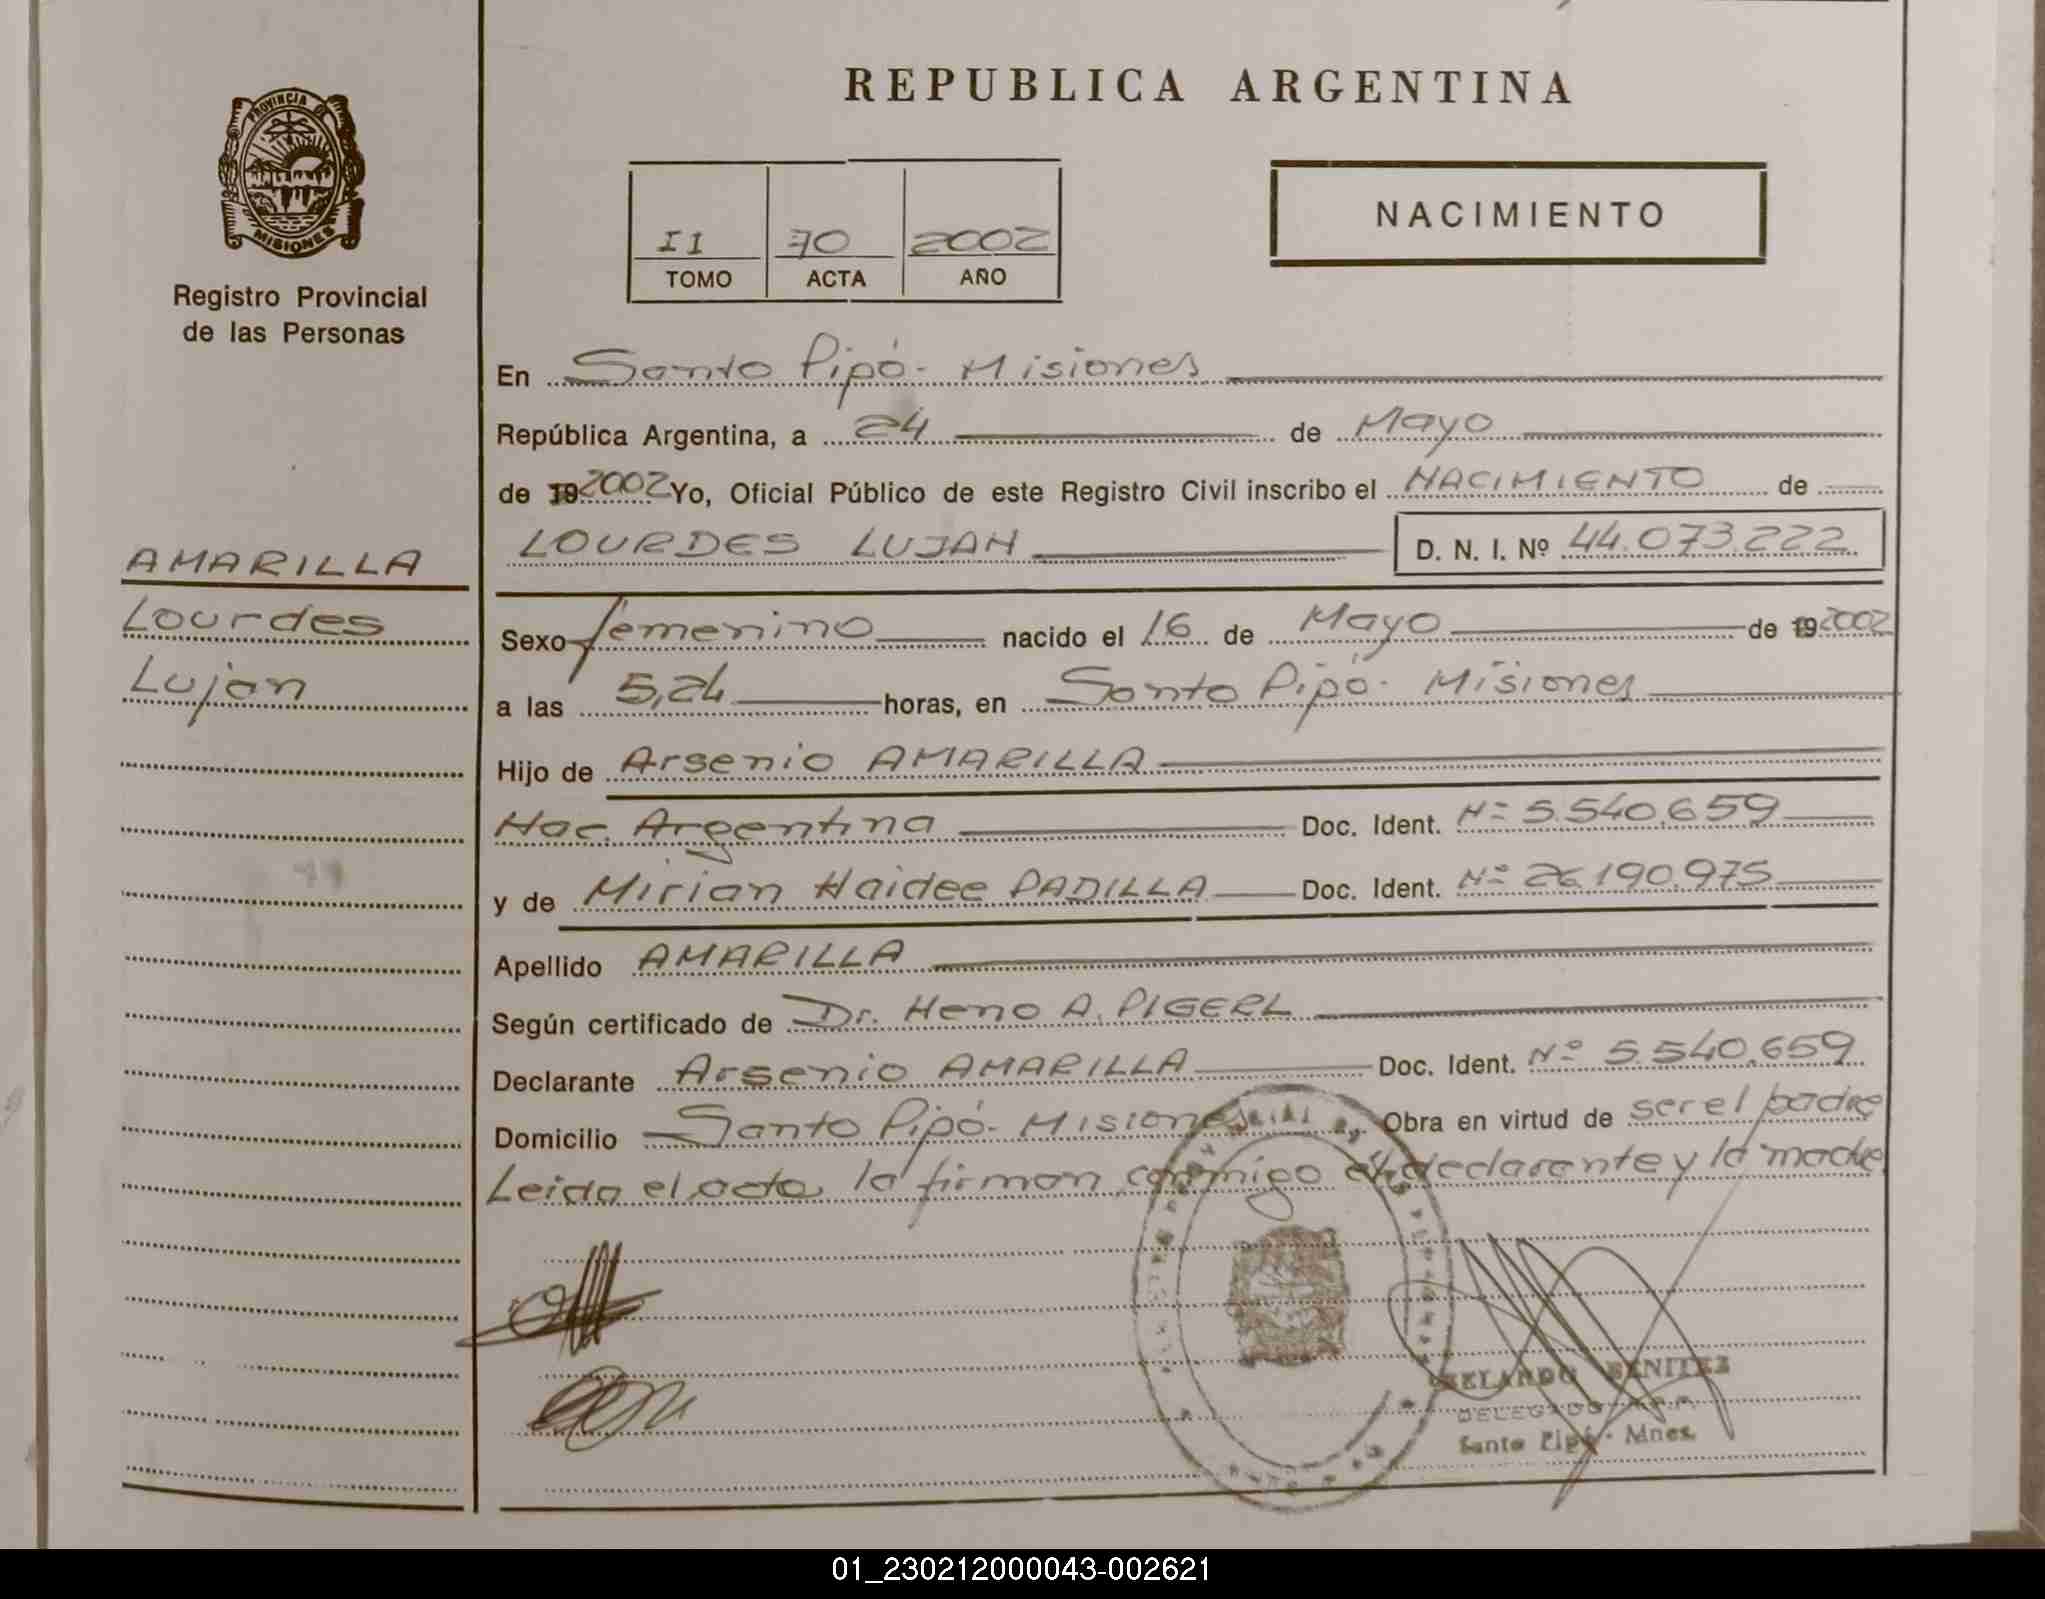 REPUBLICA ARGENTINA
PROVINCIA DE
MISIONES
Registro Provincial
de las Personas
II 70 2002
TOMO ACTA AÑO
NACIMIENTO
En Santo Pipó - Misiones
República Argentina, a 24 de Mayo
de 19 2002 Yo, Oficial Público de este Registro Civil inscribo el NACIMIENTO de
LOURDES LUJAN D. N. I. Nº 44.073.222
AMARILLA
Lourdes
Lujan
Sexo femenino nacido el 16 de Mayo de 19 2002
a las 5,24 horas, en Santo Pipó - Misiones
Hijo de Arsenio AMARILLA
Nac. Argentina Doc. Ident. Nº 5.540.659
y de Mirian Haidee PADILLA Doc. Ident. Nº 26.190.975
Apellido AMARILLA
Según certificado de Dr. Heno A. PIGERL
Declarante Arsenio AMARILLA Doc. Ident. Nº 5.540.659
Domicilio Santo Pipó - Misiones Obra en virtud de ser el padre
Leida el acta la firman conmigo el declarante y la madre
BENITEZ
DELEGADO
Santo Pipó - Mnes.
01_230212000043-002621